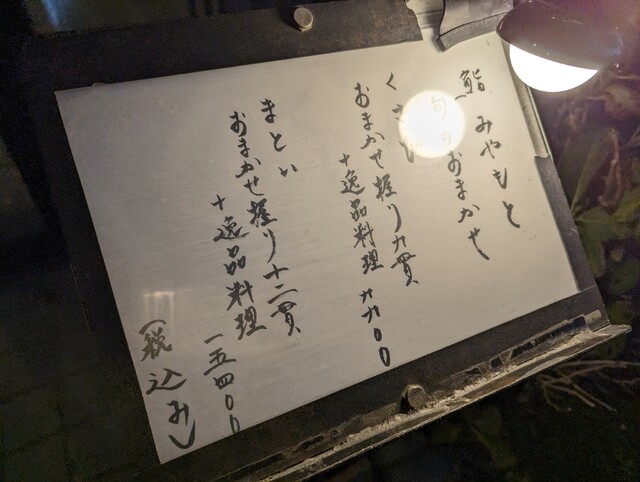 鮨 みやもと
旬のおまかせ
おまかせ握り九貫
+逸品料理 九九〇〇
まとい
おまかせ握り十二貫
+逸品料理
一五四〇〇
(税込み)